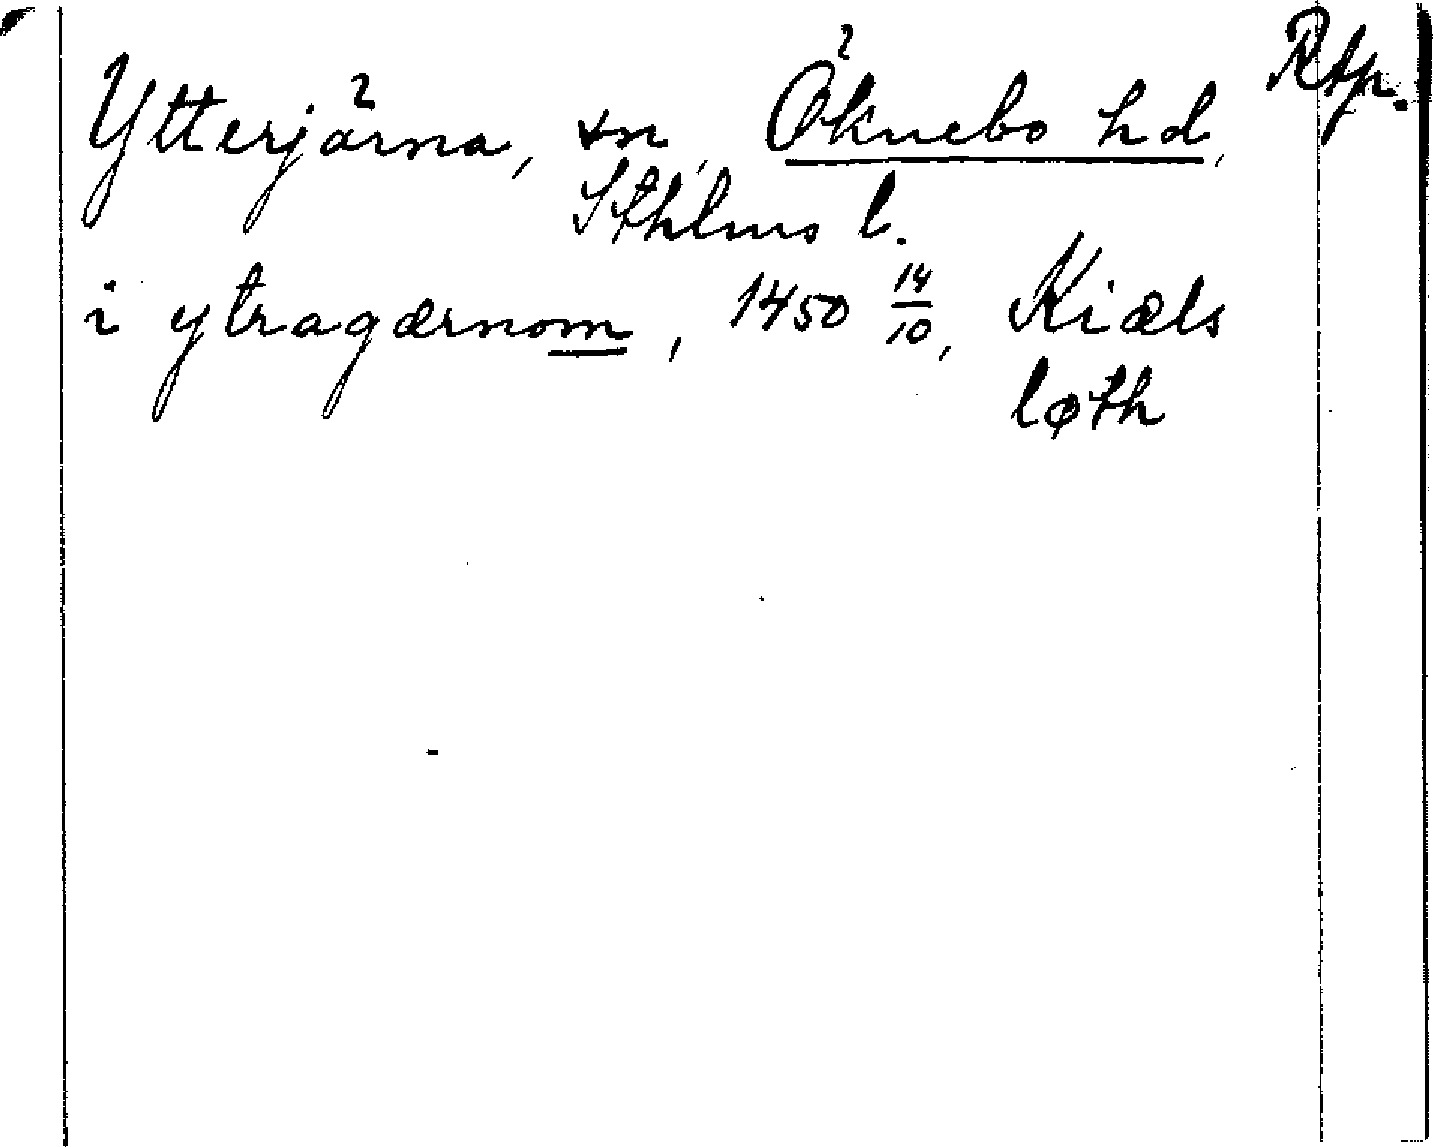 Ytterjärna, sn, Öknebo hd, Rtp.
Sthlms l.
i ytragærnom, 1450 14/10, Kiæls
løth